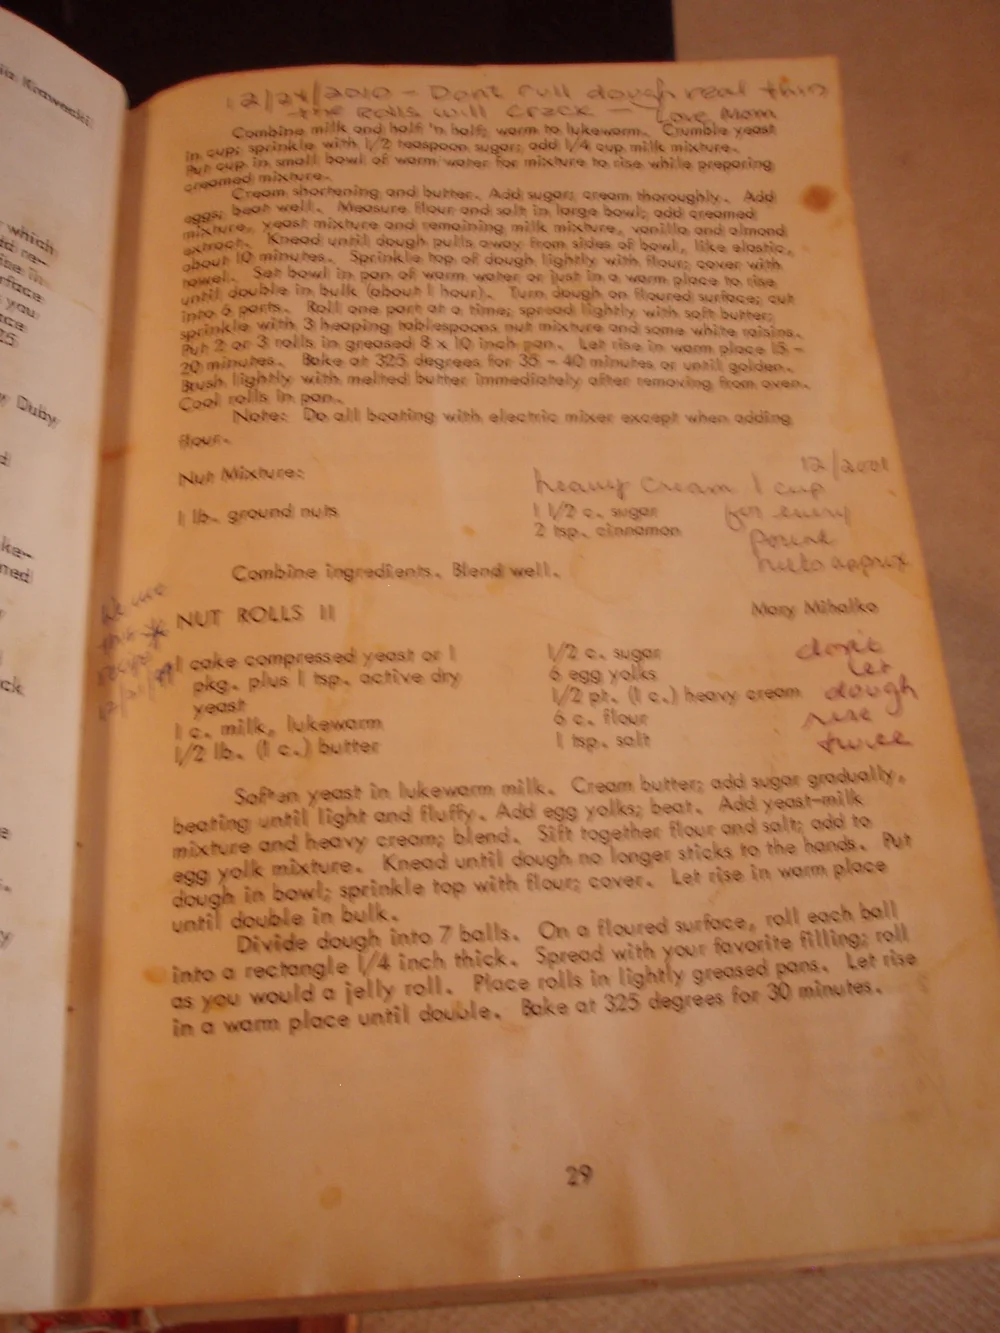 12/24/2010 - Dont roll dough real thin
the Rolls will crack - Love, Mom
Combine milk and half 'n half; warm to lukewarm. Crumble yeast
in cup; sprinkle with 1/2 teaspoon sugar; add 1/4 cup milk mixture.
Put cup in small bowl of warm water for mixture to rise while preparing
creamed mixture.
Cream shortening and butter. Add sugar; cream thoroughly. Add
eggs; beat well. Measure flour and salt in large bowl; add creamed
mixture, yeast mixture and remaining milk mixture, vanilla and almond
extract. Knead until dough pulls away from sides of bowl, like elastic,
about 10 minutes. Sprinkle top of dough lightly with flour; cover with
towel. Set bowl in pan of warm water or just in a warm place to rise
until double in bulk (about 1 hour). Turn dough on floured surface; cut
into 6 parts. Roll one part at a time; spread lightly with soft butter;
sprinkle with 3 heaping tablespoons nut mixture and some white raisins.
Put 2 or 3 rolls in greased 8 x 10 inch pan. Let rise in warm place 15 -
20 minutes. Bake at 325 degrees for 35 - 40 minutes or until golden.
Brush lightly with melted butter immediately after removing from oven.
Cool rolls in pan.
Note: Do all beating with electric mixer except when adding
flour.
Nut Mixture:
12/2001
heavy cream 1 cup
for every
pound
nuts approx
1 lb. ground nuts
1 1/2 c. sugar
2 tsp. cinnamon
Combine ingredients. Blend well.
We use
this *
recipe
NUT ROLLS II
Mary Mihalko
1 cake compressed yeast or 1
pkg. plus 1 tsp. active dry
yeast
1 c. milk, lukewarm
1/2 lb. (1 c.) butter
1/2 c. sugar
6 egg yolks
1/2 pt. (1 c.) heavy cream
6 c. flour
1 tsp. salt
don't
let
dough
rise
twice
Soften yeast in lukewarm milk. Cream butter; add sugar gradually,
beating until light and fluffy. Add egg yolks; beat. Add yeast-milk
mixture and heavy cream; blend. Sift together flour and salt; add to
egg yolk mixture. Knead until dough no longer sticks to the hands. Put
dough in bowl; sprinkle top with flour; cover. Let rise in warm place
until double in bulk.
Divide dough into 7 balls. On a floured surface, roll each ball
into a rectangle 1/4 inch thick. Spread with your favorite filling; roll
as you would a jelly roll. Place rolls in lightly greased pans. Let rise
in a warm place until double. Bake at 325 degrees for 30 minutes.
29